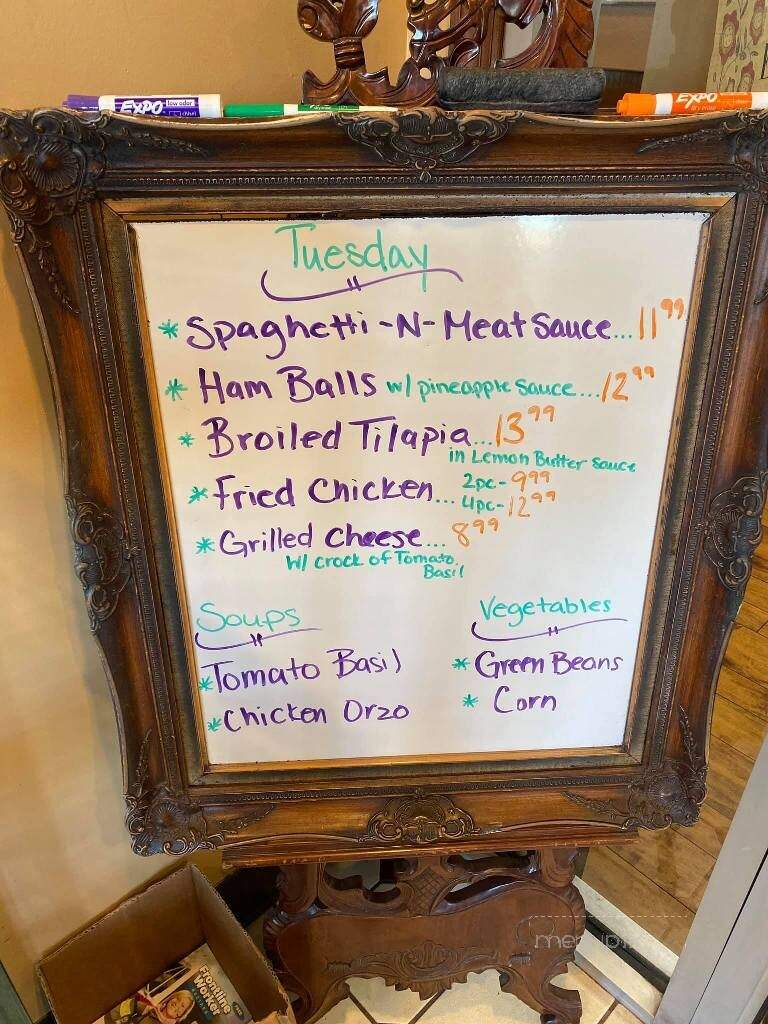 EXPO low odor
EXPO
Tuesday
* Spaghetti-N-Meat Sauce... 11 99
* Ham Balls w/ pineapple sauce... 12 99
* Broiled Tilapia... 13 99
in Lemon Butter Sauce
* Fried Chicken... 2pc- 9 99
4pc- 12 99
* Grilled Cheese... 8 99
w/ crock of Tomato
Basil
Soups
* Tomato Basil
* Chicken Orzo
Vegetables
* Green Beans
* Corn
Frontline
Worker